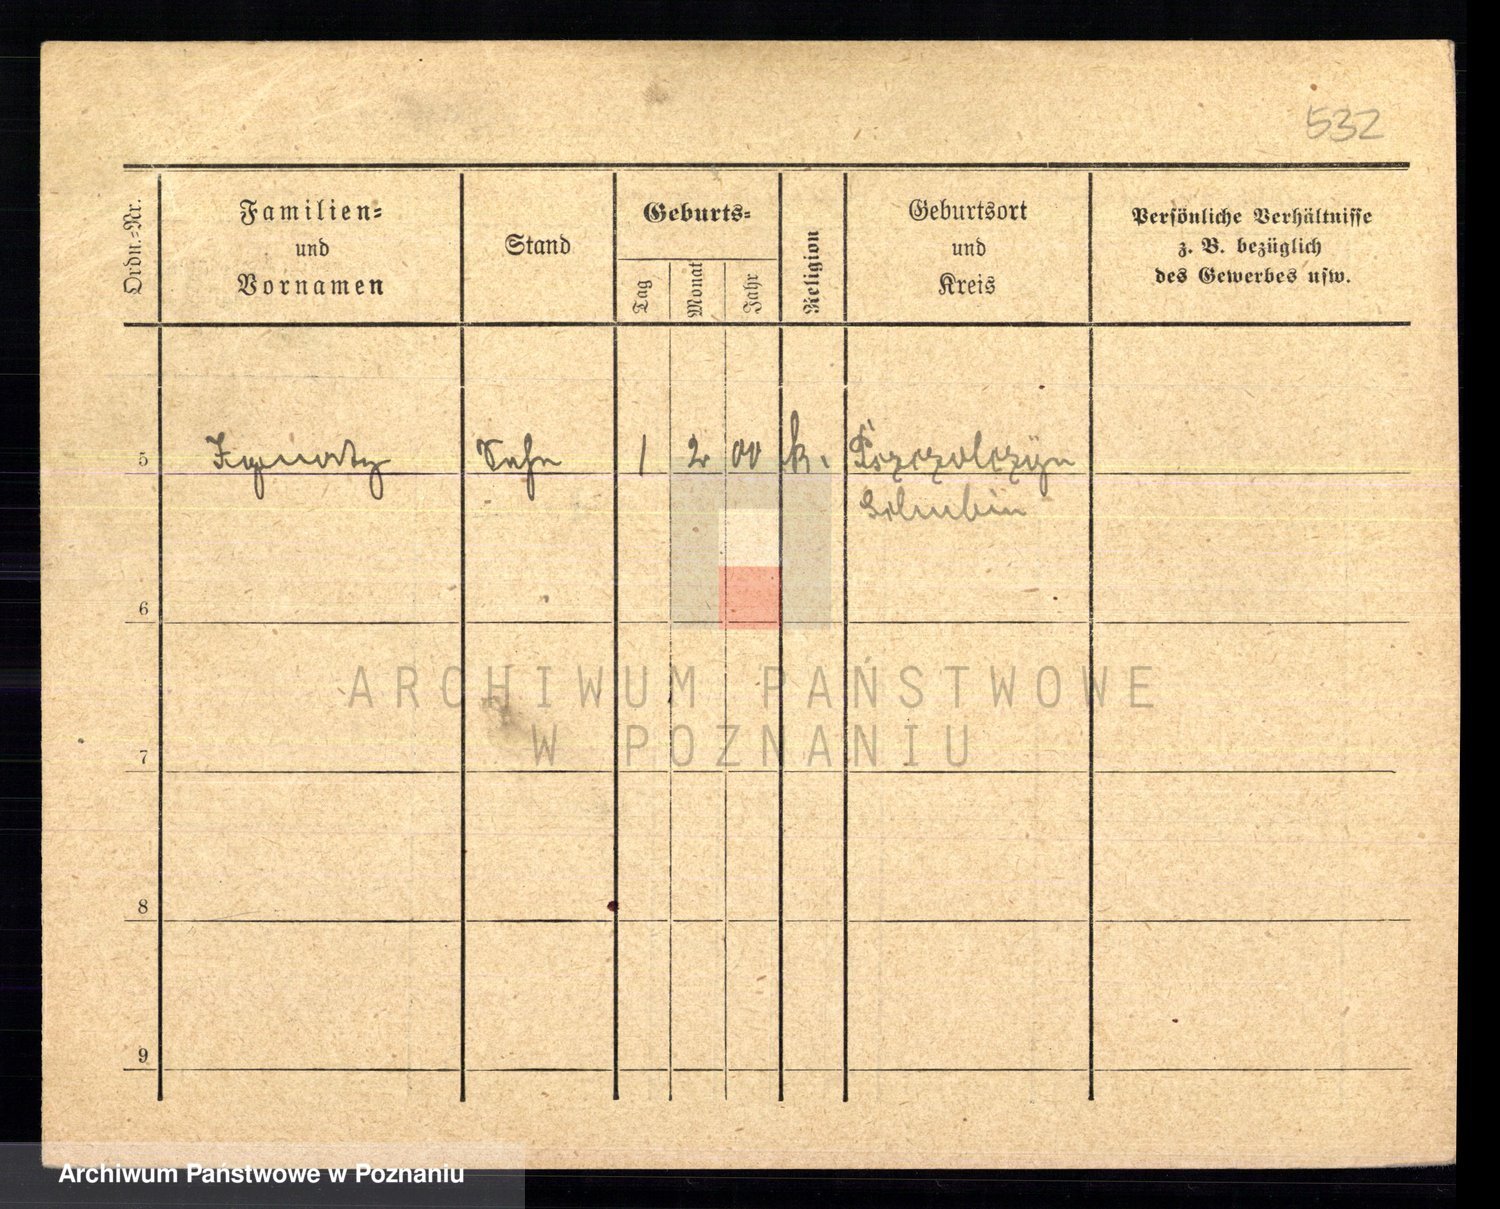 532
Ordn.-Nr.
Familien-
und
Vornamen
Stand
Geburts-
Tag
Monat
Jahr
Religion
Geburtsort
und
Kreis
Persönliche Verhältnisse
z. B. bezüglich
des Gewerbes usw.
5 Ignatz Sohn 1 2 00 k. Pszczolczyn
Schubin
6
7
8
9
ARCHIWUM PAŃSTWOWE
W POZNANIU
Archiwum Państwowe w Poznaniu